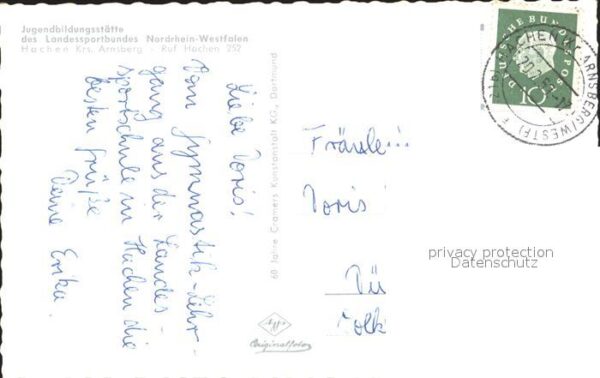 Jugendbildungsstätte
des Landessportbundes Nordrhein-Westfalen
Hachen Krs. Arnsberg - Ruf Hachen 252
Liebe Doris!
Vom Gymnastik-Lehr-
gang aus der Landes-
sportschule in Hachen die
besten Grüße
Deine Erika.
60 Jahre Cramers Kunstanstalt KG., Dortmund
Agfa
Originalfoto
Fräulein
Doris
Dü
Volk
DEUTSCHE BUNDESPOST
10
HACHEN ü. ARNSBERG (WESTF)
privacy protection
Datenschutz